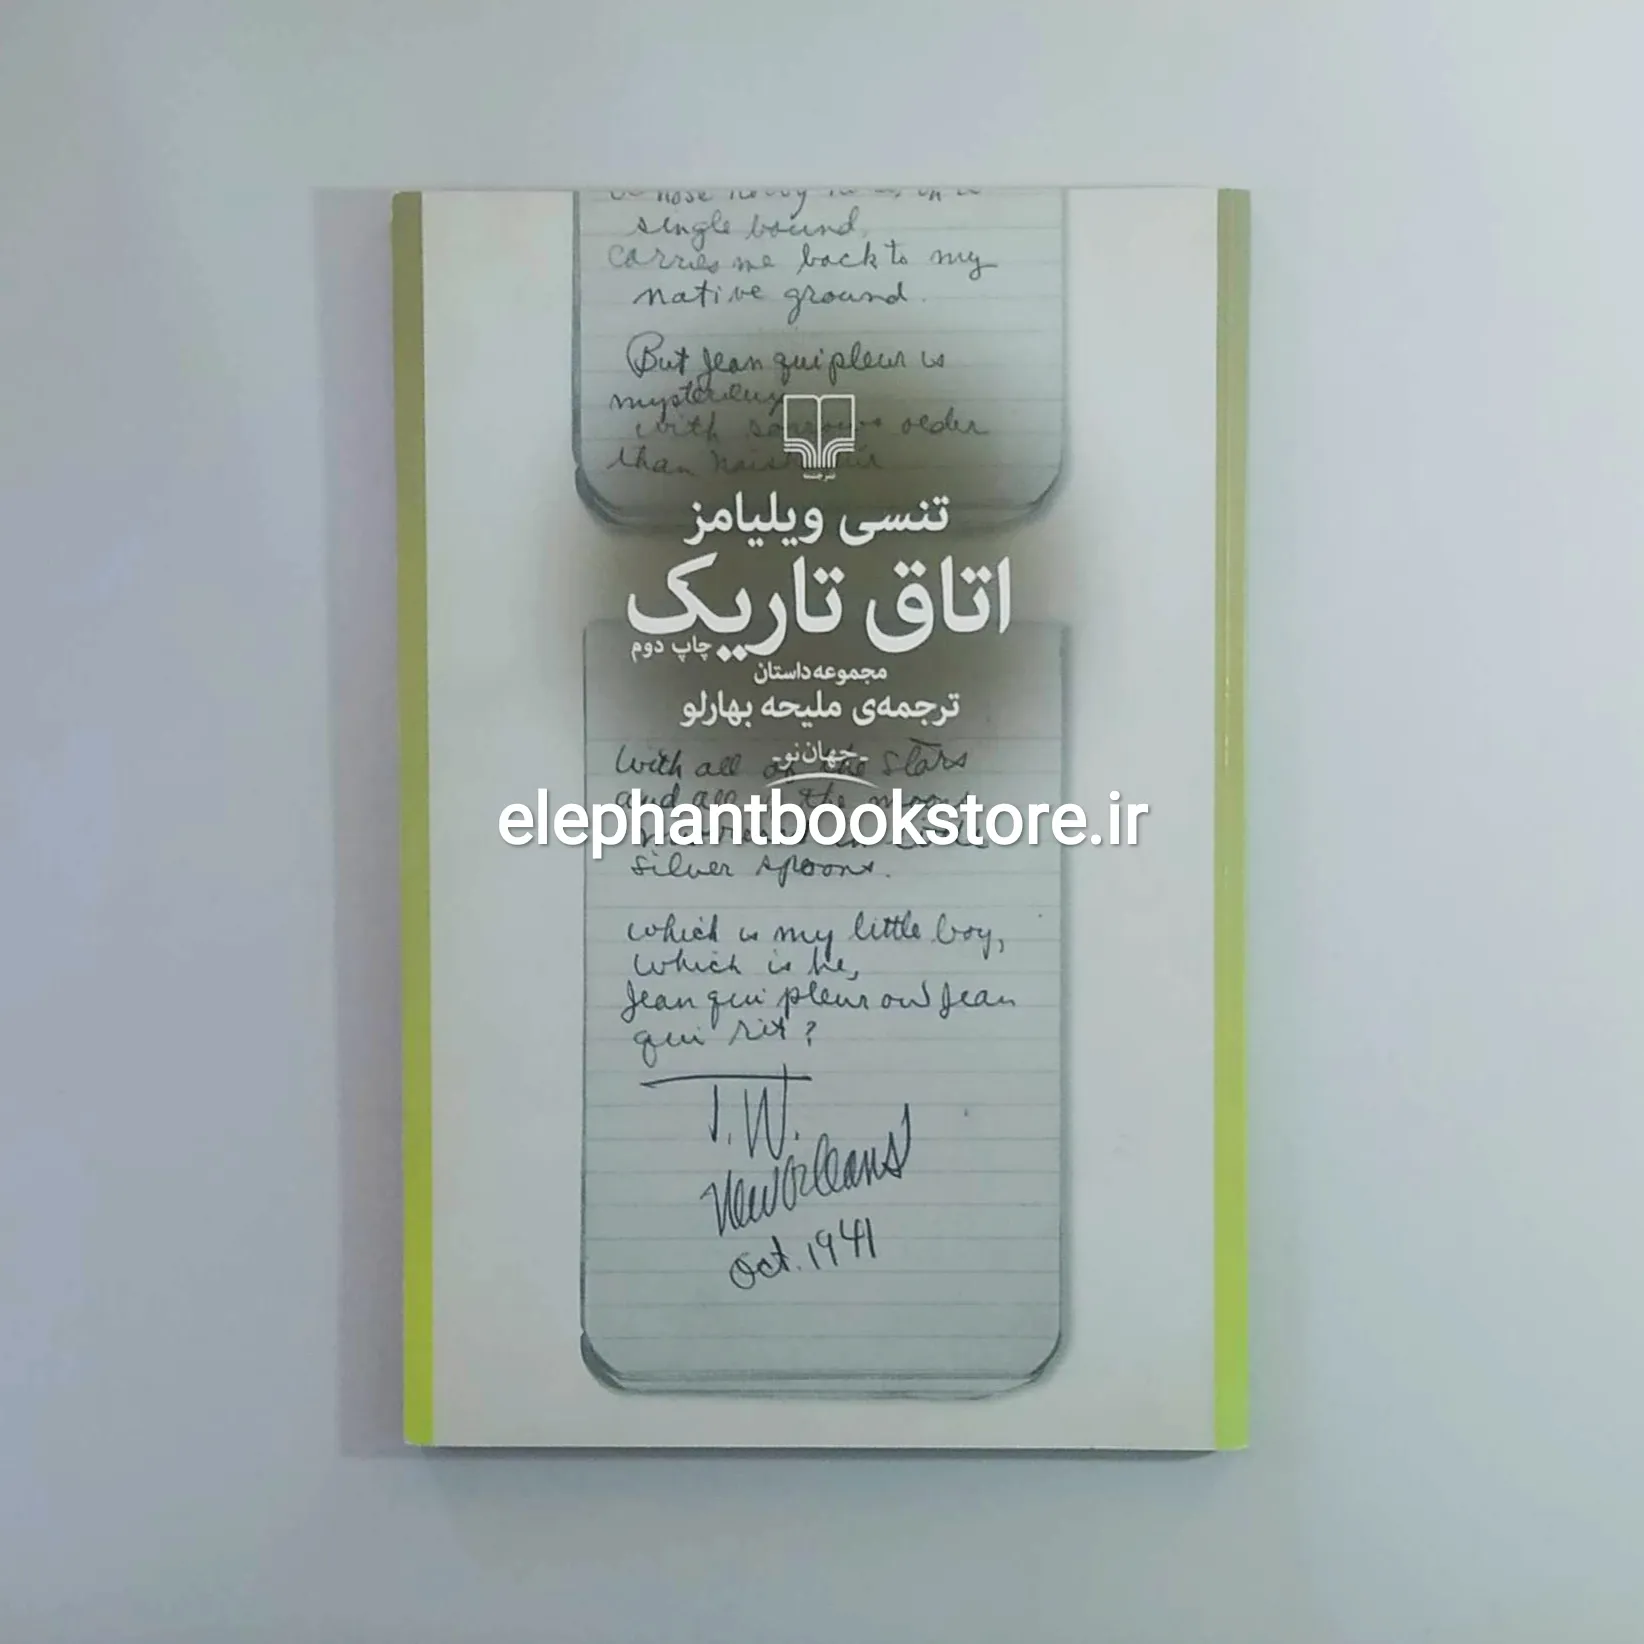 single bound,
carries me back to my
native ground.
But Jean qui pleur is
with sorrows older
than
نشر چشمه
تنسی ویلیامز
اتاق تاریک
چاپ دوم
مجموعه داستان
ترجمه‌ی ملیحه بهارلو
ـ جهان نو ـ
With all of the stars
and all the moons
elephantbookstore.ir
silver spoons.
which is my little boy,
which is he,
Jean qui pleur ou Jean
qui rit?
T.W.
New Orleans
Oct. 1941